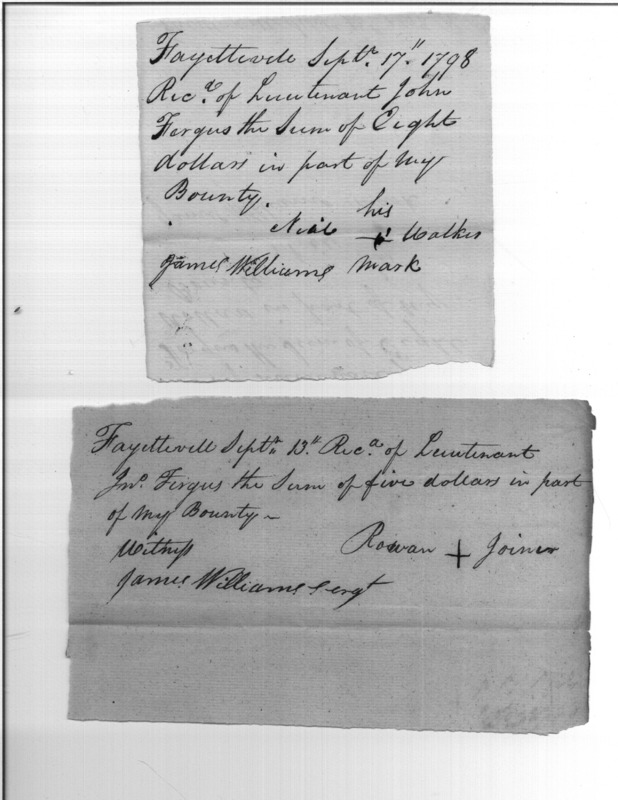 Fayettevile Septr. 17" 1798
Recd. of Lieutenant John
Fergus the Sum of Eight
dollars in part of My
Bounty.
his
Neil + Walker
James Williams Mark
Fayettevill Septr. 13" Recd. of Lieutenant
Jno. Fergus the Sum of five dollars in part
of My Bounty ~
Witness Rowan + Joiner
James Williams Sergt